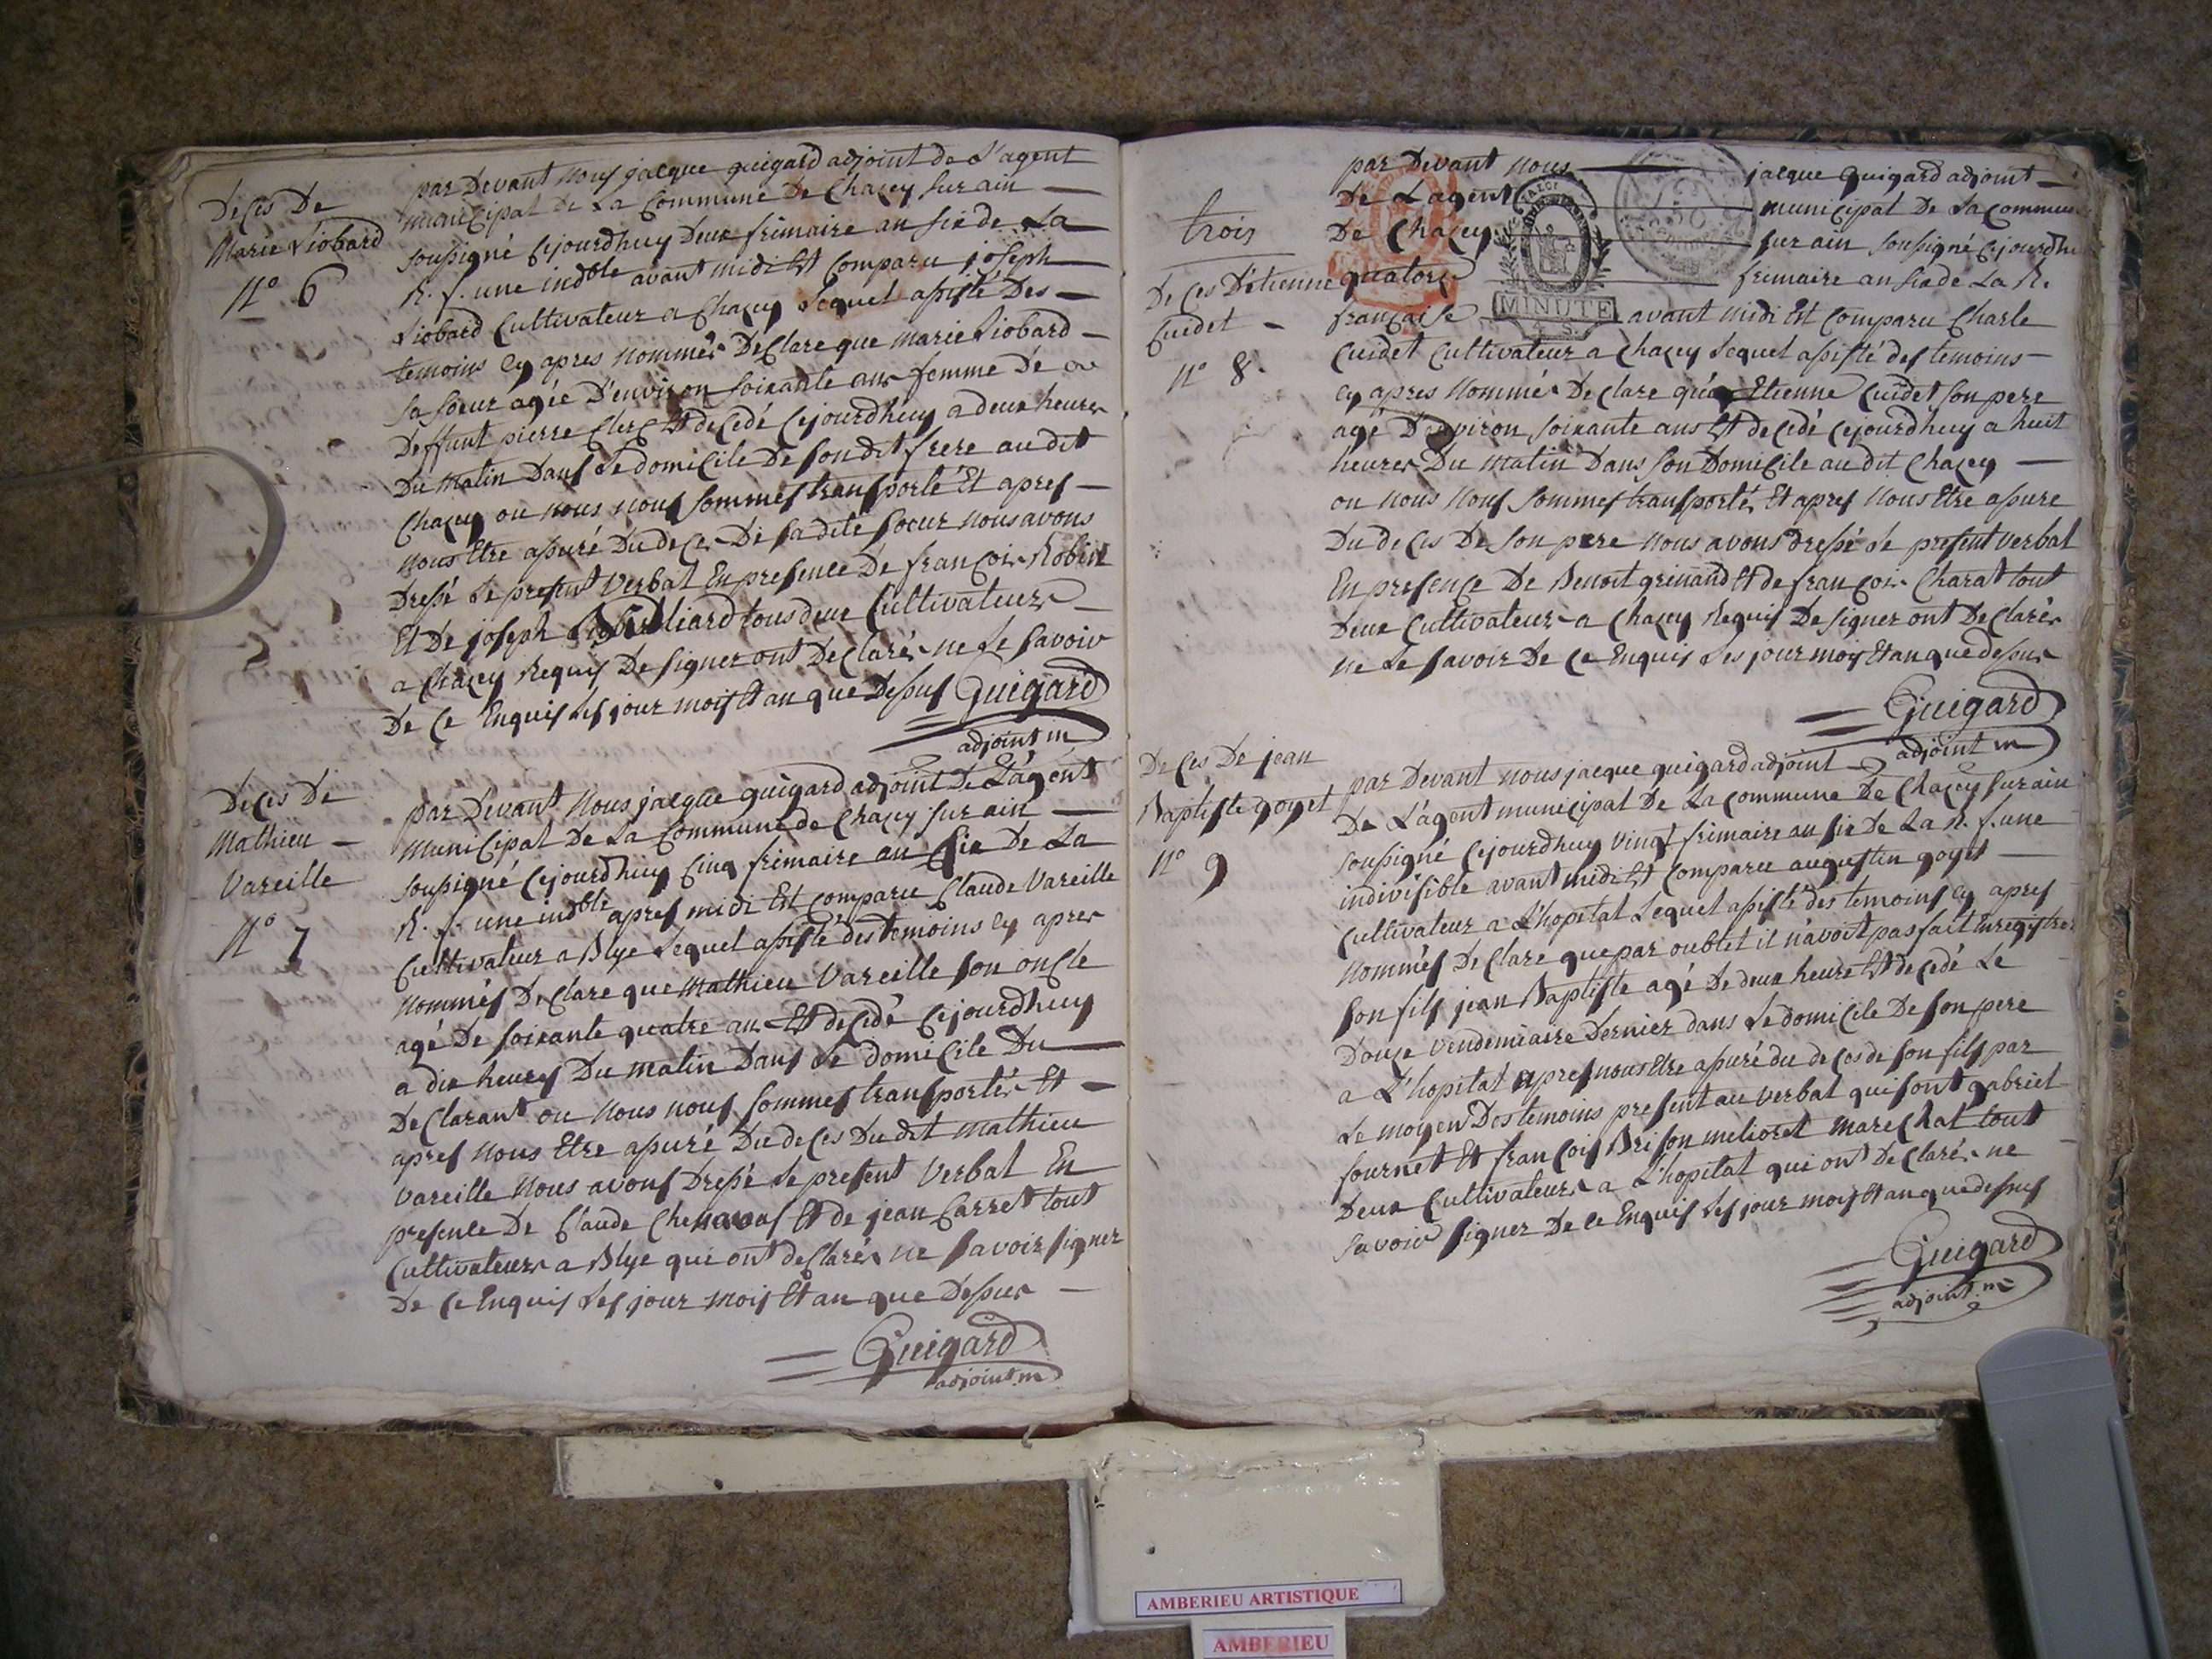 Deces De
Marie Liobard
N° 6
par Devant Nous jacque guigard adjoint de L'agent
municipal de La Commune De Chazey sur ain
soussigné Cejourdhuy Deux frimaire an six de La
R. f. une indble avant midi Est Comparu joseph
Liobard Cultivateur a Chazey Lequel assisté Des
temoins Cy apres nommés DeClare que marie Liobard
sa soeur agée D'environ soixante ans femme De
Deffunt pierre Clerc Est deCedé Cejourdhuy a deux heures
Du matin Dans Le domiCile De son dit frere au dit
Chazey ou nous nous sommes transporté Et apres
nous Etre assuré Du deces De sa dite soeur nous avons
Dressé Le present verbal En presence De françois Robin
Et De joseph tous deux Cultivateurs
a Chazey Requis De signer ont DeClarés ne Le savoir
De Ce Enquis Les jour mois Et an que Dessus Guigard
adjoint m
Deces De
Mathieu
Vareille
N° 7
par Devant Nous jacque guigard adjoint De L'agent
MuniCipal De La Commune de Chazey sur ain
soussigné Cejourdhuy Cinq frimaire an six De La
R. f. une indble apres midi Est Comparu Claude Vareille
Cultivateur a Blye Lequel assisté des temoins Cy apres
nommés DeClare que Mathieu Vareille son onCle
agé De soixante quatre ans Est deCedé Cejourdhuy
a dix heures Du matin Dans Le domiCile Du
DeClarant ou Nous nous sommes transportés Et
apres Nous Etre assuré Du deCes Du dit Mathieu
Vareille Nous avons Dressé Le present Verbal En
presence De Claude Chenavas Et de jean Carret tout
Cultivateurs a Blye qui ont deClarés ne savoir signer
De Ce Enquis Les jour mois Et an que Dessus
Guigard
adjoint m
trois
DeCes D'Etienne
Cuidet
N° 8
par Devant Nous jacque guigard adjoint
De L'agent municipal De La Commune
De Chazey sur ain soussigné Cejourdhu
quatorze frimaire an six de La R.
française avant midi Est Comparu Charle
MINUTE
Cuidet Cultivateur a Chazey Lequel assisté des temoins
Cy apres Nommés DeClare que Etienne Cuidet son pere
agé D'environ soixante ans Est deCedé Cejourdhuy a huit
heures Du matin Dans son DomiCile au dit Chazey
ou nous Nous sommes transportés Et apres Nous Etre assure
Du deCes De son pere Nous avons dressé Le present verbal
En presence De Benoit grinand Et de françois Charat tout
Deux Cultivateurs a Chazey Requis De signer ont DeClarés
ne Le savoir De Ce Enquis Les jour mois Et an que dessus
Guigard
adjoint m
DeCes De jean
Baptiste goyet
N° 9
par Devant nous jacque guigard adjoint
De L'agent municipal De La Commune De Chazey sur ain
soussigné Cejourdhuy vingt frimaire an six De La R. f. une
indivisible avant midi Est Comparu augustin goyet
Cultivateur a L'hopital Lequel assisté des temoins Cy apres
Nommés DeClare que par oublet il n'avoit pas fait Enregistrer
son fils jean Baptiste agé De deux heure Est deCedé Le
Douze Vendemiaire Dernier dans Le domiCile De son pere
a L'hopital apres nous Etre assuré du deCes de son fils par
Le moyen Des temoins present au verbal qui sont gabriel
fournet Et françois Brison marechal tout
Deux Cultivateurs a L'hopital qui ont DeClarés ne
savoir signer De Ce Enquis Les jour mois Et an que dessus
Guigard
adjoint m
AMBERIEU ARTISTIQUE
AMBERIEU